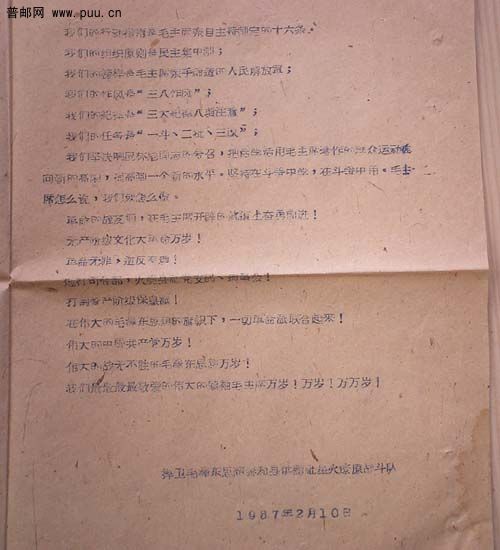 普邮网
www.puu.cn
我们的行动指南是毛主席亲自主持制定的十六条；
我们的组织原则是民主集中制；
我们的榜样是毛主席亲手缔造的人民解放军；
我们的作风是“三八作风”；
我们的纪律是“三大纪律八项注意”；
我们的任务是“一斗、二批、三改”；
我们坚决响应林彪同志的号召，把活学活用毛主席著作的群众运动推
向新的高潮，提高到一个新的水平。坚持在斗争中学，在斗争中用。毛主
席怎么说，我们就怎么做。
革命的战友们，在毛主席开辟的航道上奋勇前进！
无产阶级文化大革命万岁！
革命无罪，造反有理！
炮打司令部，火烧
打倒资产阶级保皇派！
在伟大的毛泽东思想的旗帜下，一切革命派联合起来！
伟大的中国共产党万岁！
伟大的战无不胜的毛泽东思想万岁！
我们最最最最敬爱的伟大的领袖毛主席万岁！万岁！万万岁！
捍卫毛泽东思想 火燎原战斗队
1967年2月10日